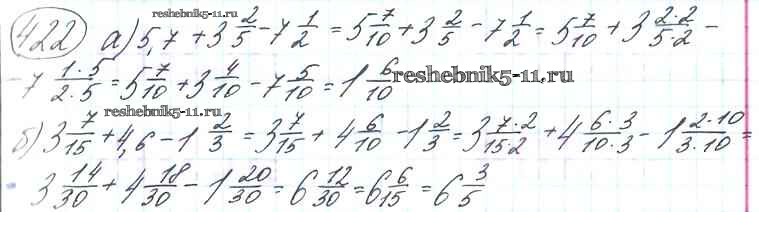 422 а) 5,7 + 3 2/5 - 7 1/2 = 5 7/10 + 3 2/5 - 7 1/2 = 5 7/10 + 3 2·2/5·2 -
- 7 1·5/2·5 = 5 7/10 + 3 4/10 - 7 5/10 = 1 6/10
reshebnik5-11.ru
reshebnik5-11.ru
б) 3 7/15 + 4,6 - 1 2/3 = 3 7/15 + 4 6/10 - 1 2/3 = 3 7·2/15·2 + 4 6·3/10·3 - 1 2·10/3·10 =
3 14/30 + 4 18/30 - 1 20/30 = 6 12/30 = 6 6/15 = 6 3/5